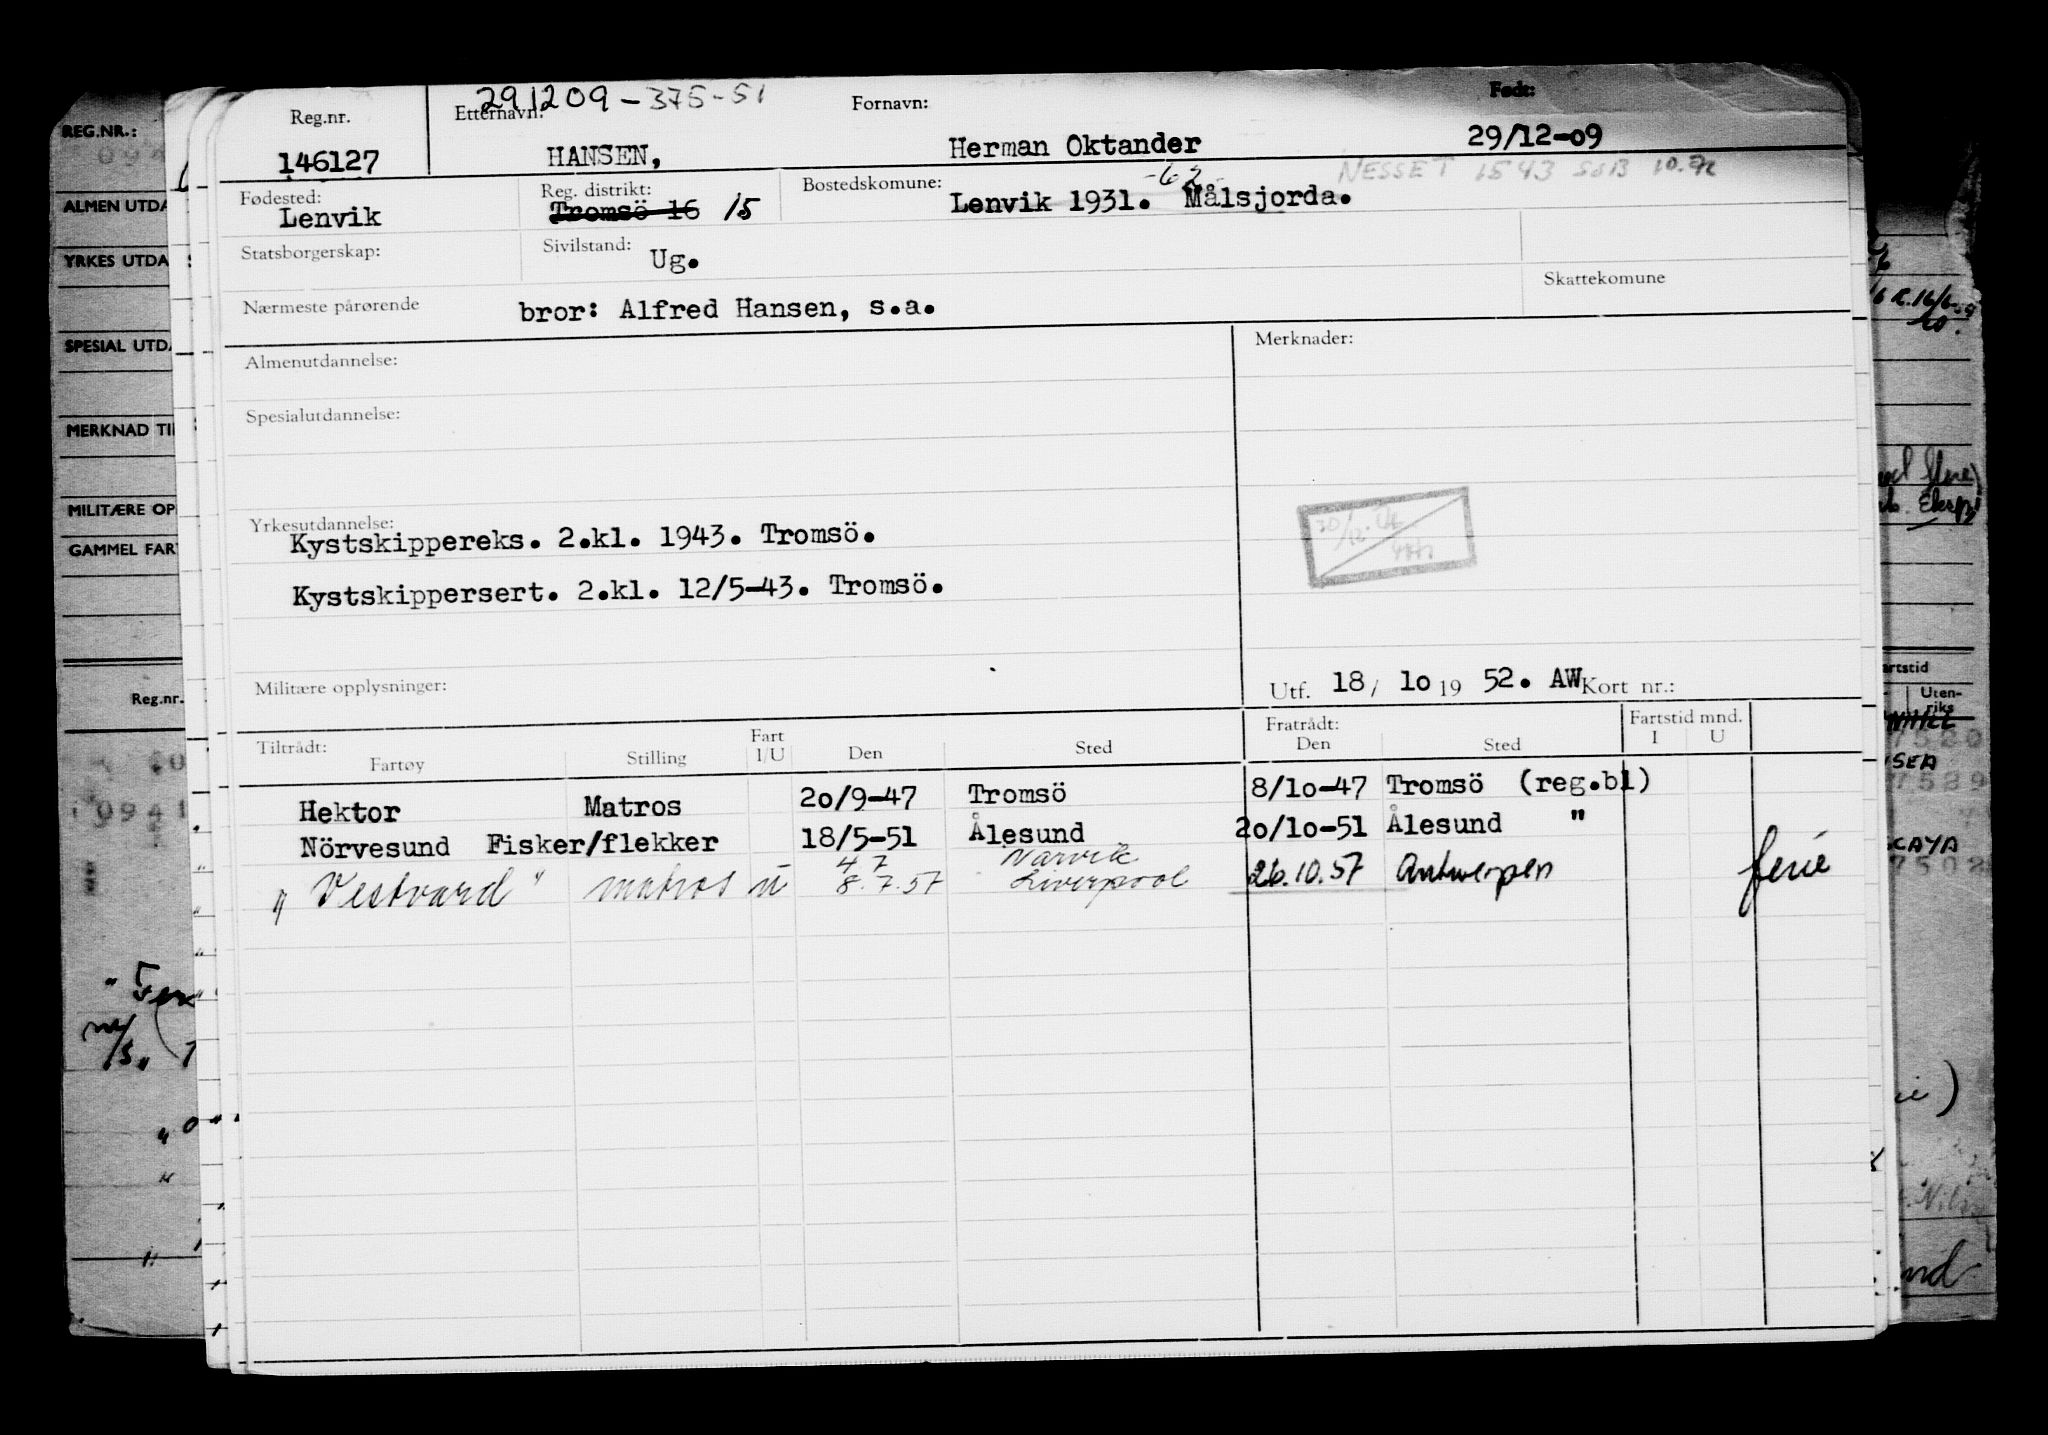 291209-375-51
Reg.nr. Etternavn: Fornavn: Født:
146127 HANSEN, Herman Oktander 29/12-09
-62 NESSET 1543
Fødested: Reg. distrikt: Bostedskomune:
Lenvik Tromsö 16 15 Lenvik 1931. Målsjorda.
Statsborgerskap: Sivilstand: Ug.
Skattekomune
Nærmeste pårørende bror: Alfred Hansen, s.a.
Almenutdannelse: Merknader:
Spesialutdannelse:
Yrkesutdannelse:
Kystskippereks. 2.kl. 1943. Tromsö.
Kystskippersert. 2.kl. 12/5-43. Tromsö.
Militære opplysninger: Utf. 18/ 1o 19 52. AW Kort nr.:
Tiltrådt: Fratrådt: Fartstid mnd.
Fartøy Stilling Fart I/U Den Sted Den Sted I U
Hektor Matros 2o/9-47 Tromsö 8/1o-47 Tromsö (reg.bl)
Nörvesund Fisker/flekker 18/5-51 Ålesund 2o/1o-51 Ålesund "
4 7 Narvik
"Vestvard" matros u 8.7.57 Liverpool 26.10.57 Antwerpen ferie
REG.NR.:
ALMEN UTDA
YRKES UTDA
SPESIAL UTD
MERKNAD TI
MILITÆRE OP
GAMMEL FAR
Reg.nr.
artstid
Uten-
riks